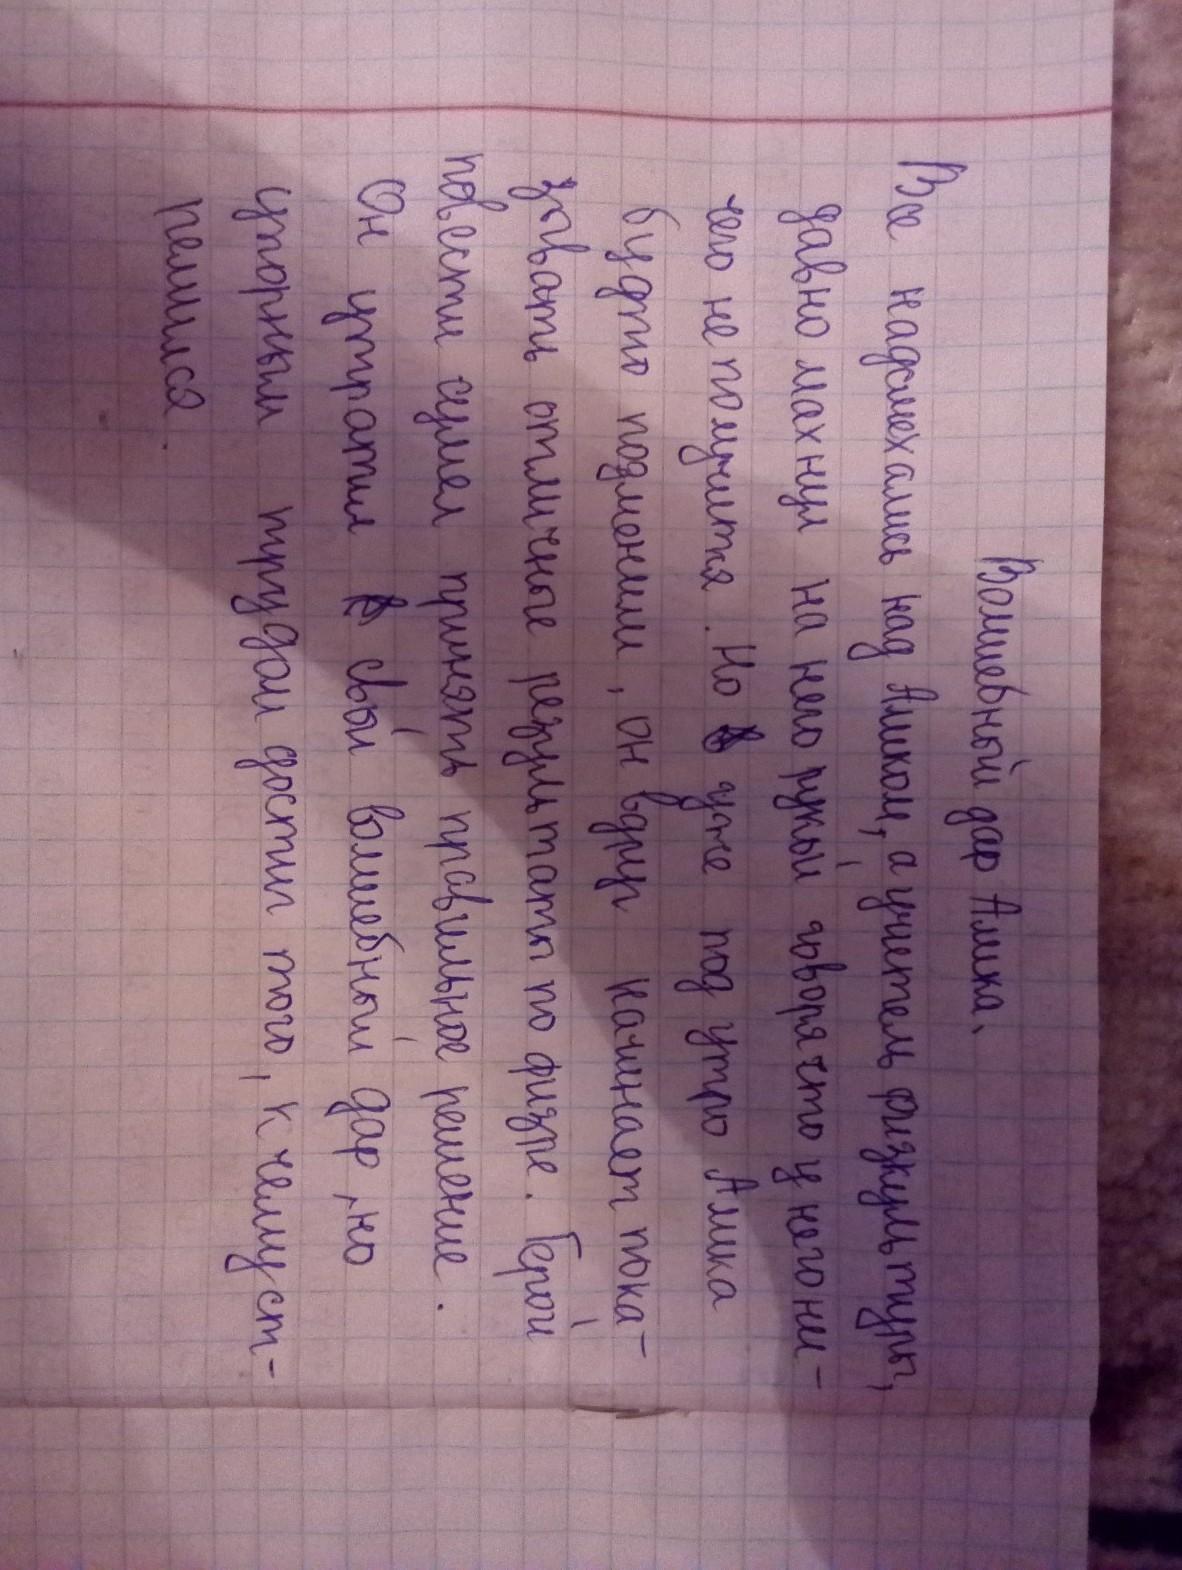 Волшебный дар Алика.
Все надсмехались над Аликом, а учитель физкультуры,
давно махнул на него рукой говоря что у него ни-
чего не получится. Но уже под утро Алика
будто подменили, он вдруг начинает пока-
зывать отличные результаты по физре. Герой
повести сумел принять правильное решение.
Он утратил свой волшебный дар, но
упорным трудом достиг того, к чему ст-
ремился.